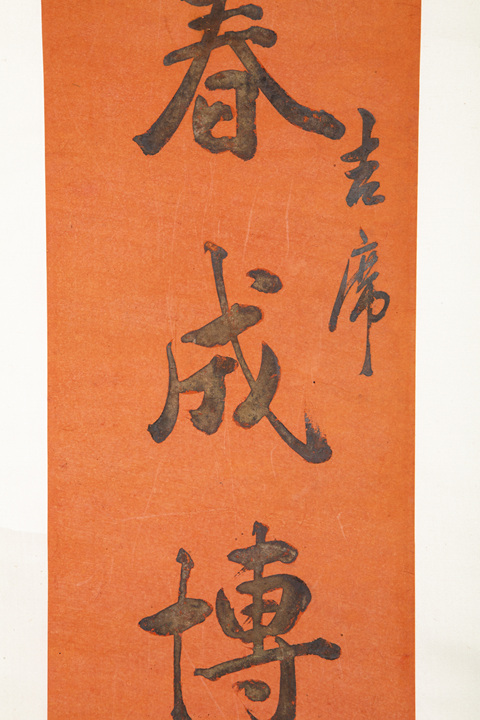 吉席
春成博